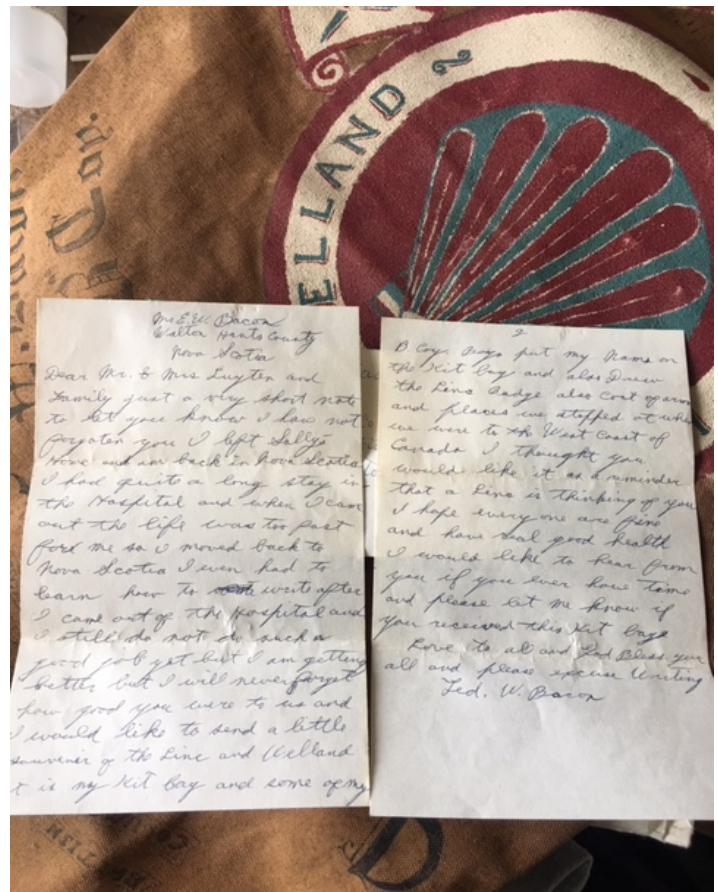 ELLAND
Coy.
Mr E.W. Bacon
Walton Hants County
Nova Scotia
Dear Mr. & Mrs Luyten and
Family just a very short note
to let you know I have not
forgoten you I left Sally's
Home and am back in Nova Scotia
I had quite a long stay in
the Hospital and when I came
out the life was too fast
for me so I moved back to
Nova Scotia I even had to
learn how to write after
I came out of the Hospital and
I still do not do such a
good job yet but I am getting
better but I will never forget
how good you were to us and
I would like to send a little
souvenir of the Linc and Welland
it is my Kit bag and some of my
2
B Coy. Boys put my Name on
the Kit bag and also Drew
the Linc Badge also Coat of arm
and places we stopped at when
we were to the West Coast of
Canada I thought you
would like it as a reminder
that a Linc is thinking of you
I hope every one are fine
and have real good health
I would like to hear from
you if you ever have time
and please let me know if
you received this Kit bag
Love to all and God Bless you
all and please excuse writing
Ted. W. Bacon